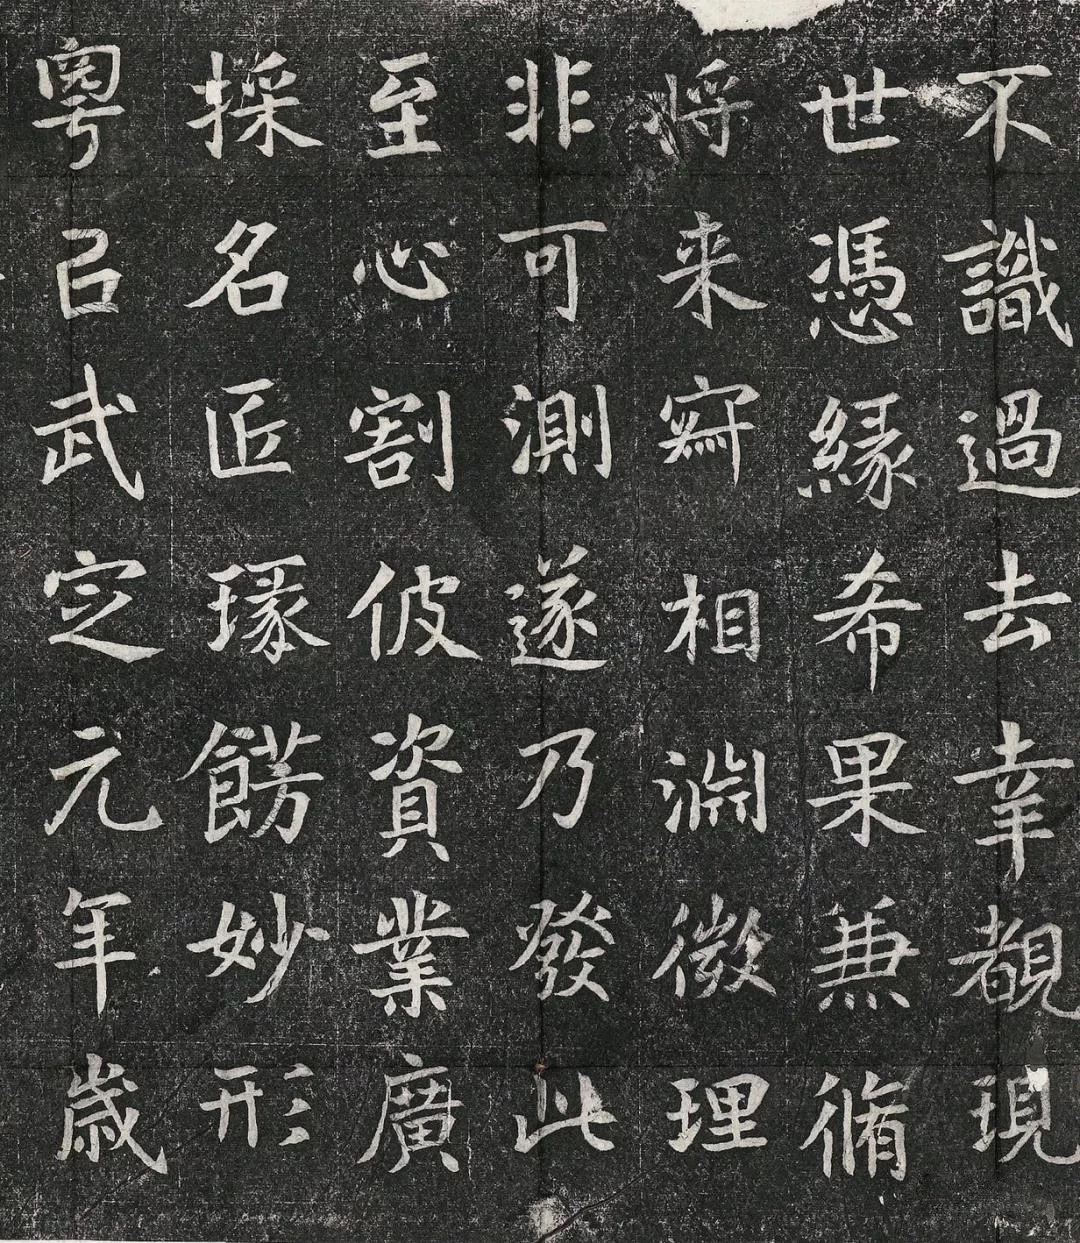 不識過去幸覩現
世憑緣希果兼脩
将来寂相淵微理
非可測遂乃發此
至心割彼資業廣
採名匠瑑餝妙形
粤㠯武定元年歲